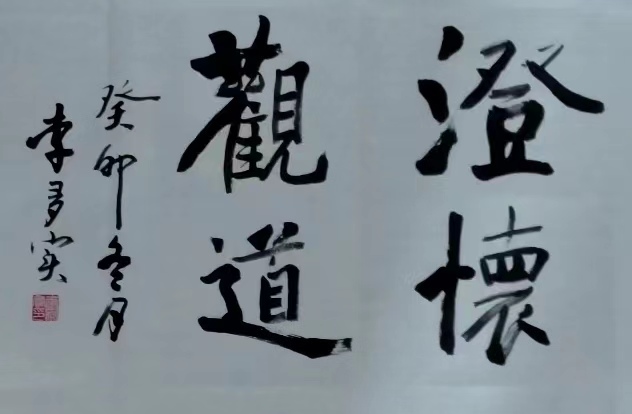 澄懷
觀道
癸卯冬月
李多实